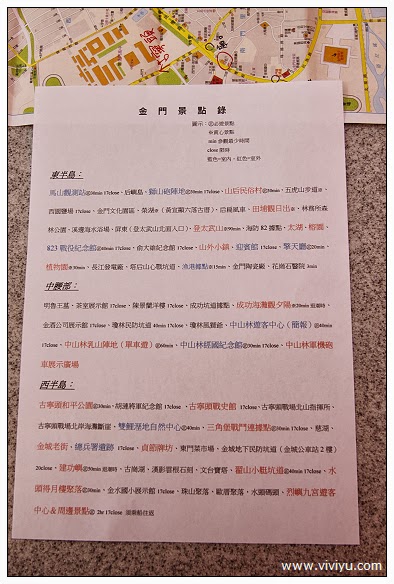 金門景點錄
圖示：◎必遊景點
※真心景點
min 參觀最少時間
close 關閉
藍色=室內，紅色=室外
東半島：
馬山觀測站◎30min 17close、后嶼島、獅山砲陣地◎30min 17close、山后民俗村◎30min、五虎山步道※、
西園鹽場 17close、金門文化園區、榮湖※（黃宣顯六落古厝）、后頭風車、田埔觀日出※、林務所森
林公園、溪邊海水浴場、屏東（登太武山北面入口）、登太武山※90min、海防 82 據點、太湖、榕園、
823 戰役紀念館◎40min 17close、俞大維紀念館 17close、山外小鎮、迎賓館 17close、擎天廳◎20min、
植物園※30min、長江發電廠、塔后山心戰坑道、漁港據點※15min、金門陶瓷廠、花崗石醫院 3min
中腰部：
明魯王墓、茶室展示館 17close、陳景蘭洋樓 17close、成功坑道據點、成功海灘觀夕陽※20min 退潮時、
金酒公司展示館 17close、瓊林民防坑道 40min 17close、瓊林風獅爺、中山林遊客中心（簡報）◎40min
17close、中山林乳山陣地（單車遊）◎60min、中山林經國紀念館◎30min 17close、中山林軍機砲
車展示廣場
西半島：
古寧頭和平公園◎30min、胡璉將軍紀念館 17close、古寧頭戰史館 17close、古寧頭戰場北山指揮所、
古寧頭戰場北岸海灘斷崖、雙鯉溼地自然中心◎40min、三角堡戰鬥連據點◎30min 17close、慈湖、
金城老街、總兵署遺跡 17close、貞節牌坊、東門菜市場、金城地下民防坑道（金城公車站 2 樓）
20close、建功嶼◎50min 退潮時、古崗湖、漢影雲根石刻、文台寶塔、翟山小艇坑道◎40min 17close、水
頭得月樓聚落◎30min、金水國小展示館 17close、珠山聚落、歐厝聚落、水頭碼頭、烈嶼九宮遊客
中心＆周邊景點◎ 2hr 17close
www.viviyu.com